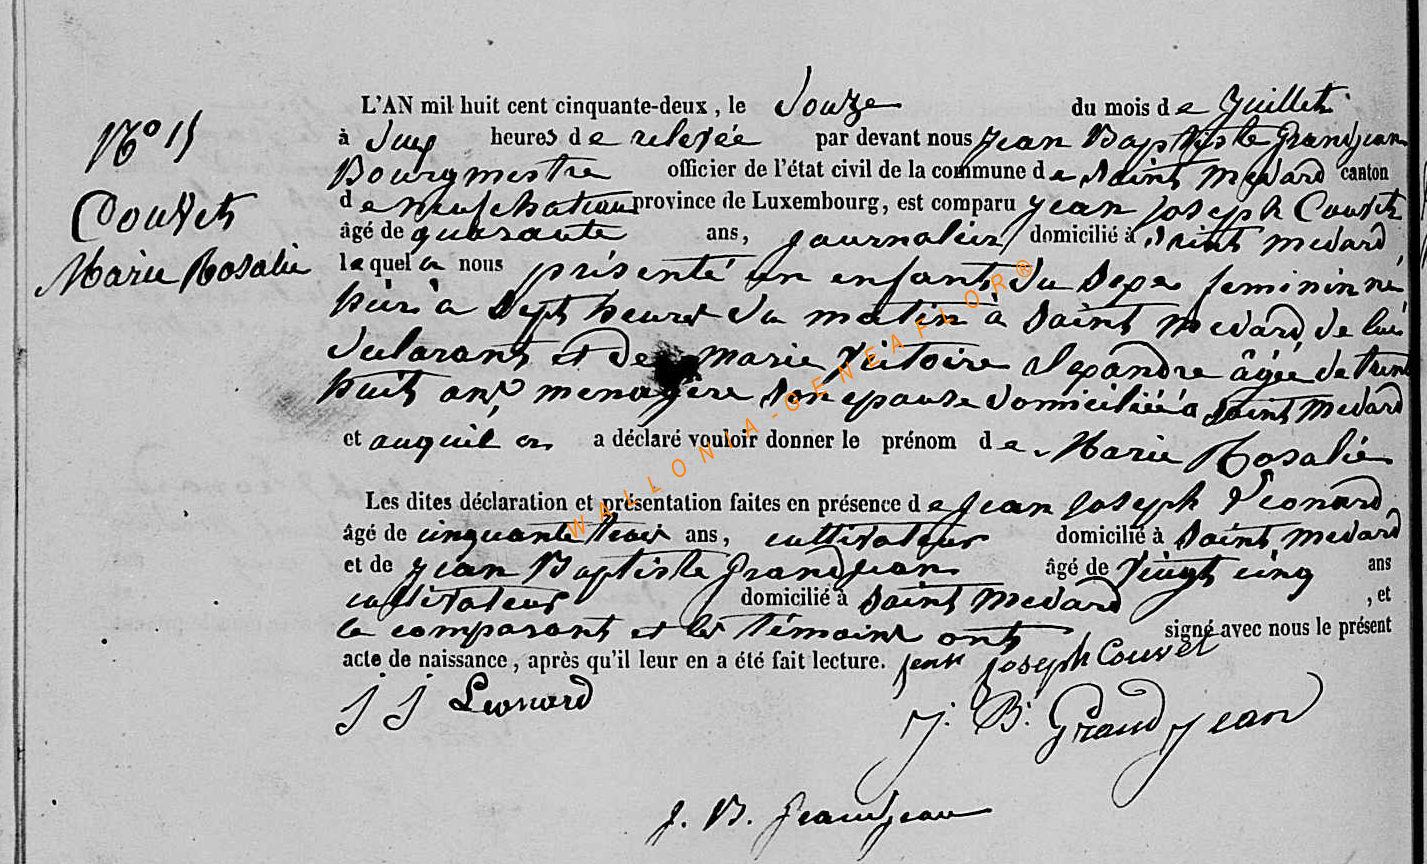 N° 15
Couvet
Marie Rosalie
L'AN mil huit cent cinquante-deux, le douze du mois de Juillet
à heures de relevée par devant nous Jean Baptiste Grandjean
Bourgmestre officier de l'état civil de la commune de Saint Medard canton
de neufchateau province de Luxembourg, est comparu Jean Joseph Couvet
âgé de quarante ans, journalier domicilié à Saint Medard
lequel a nous présenté un enfant du sexe feminin né
hier à sept heures du matin à Saint Medard, de lui
declarant et de marie Victoire Alexandre âgée de trente
huit ans menagère son epouse domiciliée à Saint Medard
et auquel on a déclaré vouloir donner le prénom de Marie Rosalie
Les dites déclaration et présentation faites en présence de Jean Joseph Léonard
âgé de cinquante trois ans, cultivateur domicilié à Saint Medard
et de Jean Baptiste Grandjean âgé de vingt cinq ans
cultivateur domicilié à Saint Medard, et
le comparant et les témoins ont signé avec nous le présent
acte de naissance, après qu'il leur en a été fait lecture. jean joseph Couvet
j j Leonard
J. B. Grandjean
J. B. Grandjean
WALLONIA-GENEAFLOR®